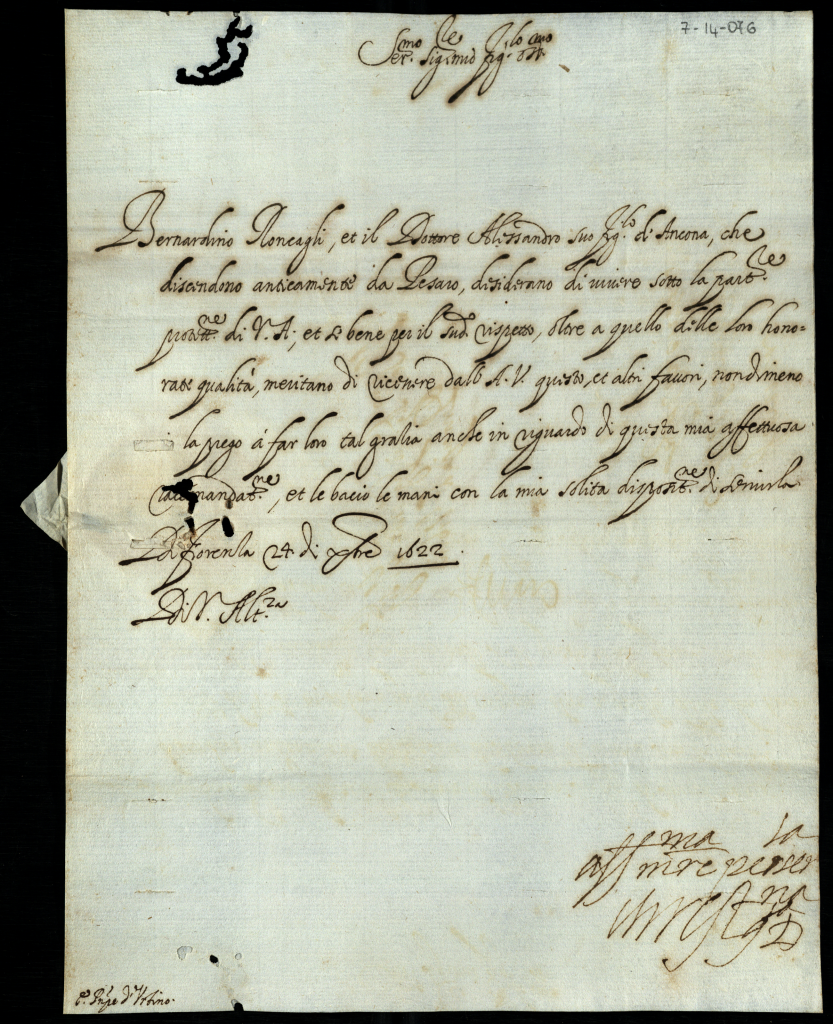 7-14-076
Ser.mo Sig.re mio fig.lo car.mo oss.
Bernardino Roncagli, et il Dottore Alessandro suo fig.lo di Ancona, che
discendono anticamente da Pesaro, desiderano di vivere sotto la part.re
prott.ne di V. A; et se bene per il sud.o rispetto, oltre a quello delle loro hono=
rate qualità, meritano di ricevere dall' A. V. questo, et altri favori, nondimeno
la prego á far loro tal gratia anche in riguardo di questa mia affettuosa
raccomandat.ne, et le bacio le mani con la mia solita disposit.ne di servirla
Di Fiorenza 24 di Xbre 1622.
Di V. Alt.za
aff.ma mre per ser.la
Chrest.na G D
S. Prnpe d'Urbino.